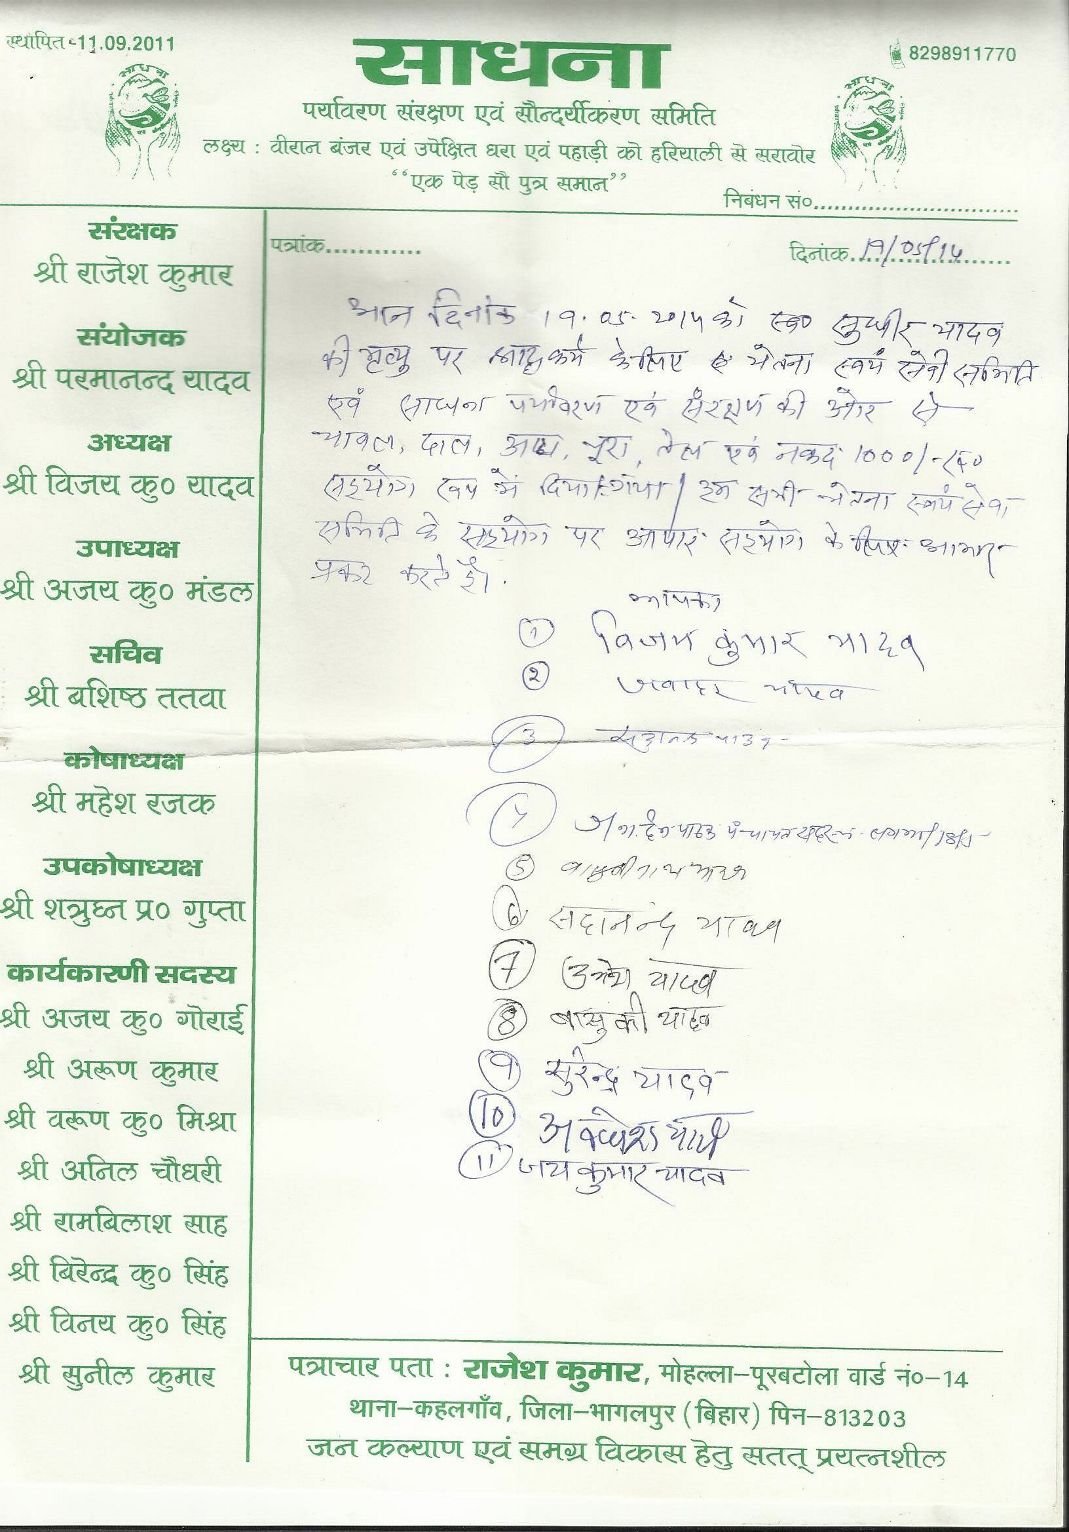 स्थापित-11.09.2011
8298911770
साधना
पर्यावरण संरक्षण एवं सौन्दर्यीकरण समिति
लक्ष्य : वीरान बंजर एवं उपेक्षित धरा एवं पहाड़ी को हरियाली से सरावोर
“एक पेड़ सौ पुत्र समान”
निबंधन सं०
पत्रांक
दिनांक 19/05/14
संरक्षक
श्री राजेश कुमार
संयोजक
श्री परमानन्द यादव
अध्यक्ष
श्री विजय कु० यादव
उपाध्यक्ष
श्री अजय कु० मंडल
सचिव
श्री बशिष्ठ ततवा
कोषाध्यक्ष
श्री महेश रजक
उपकोषाध्यक्ष
श्री शत्रुघ्न प्र० गुप्ता
कार्यकारणी सदस्य
श्री अजय कु० गोराई
श्री अरूण कुमार
श्री वरूण कु० मिश्रा
श्री अनिल चौधरी
श्री रामबिलाश साह
श्री बिरेन्द्र कु० सिंह
श्री विनय कु० सिंह
श्री सुनील कुमार
आज दिनांक 19.05.2014 को स्व० सुधीर यादव
की मृत्यु पर श्राद्धकर्म के लिए चेतना स्वयं सेवी समिति
एवं साधना पर्यावरण एवं संरक्षण की ओर से
चावल, दाल, आटा, चूरा, तेल एवं नकद 1000/-रू०
सहयोग रूप में दिया गया। हम सभी चेतना स्वयं सेवी
समिति के सहयोग पर आपार सहयोग के लिए आभार
प्रकट करते हैं।
आपका
1 विजय कुमार यादव
2 जवाहर यादव
3 यादव
4
5
6 सदानन्द यादव
7 उमेश यादव
8 बासुकी यादव
9 सुरेन्द्र यादव
10 अवधेश
11 जय कुमार यादव
पत्राचार पता : राजेश कुमार, मोहल्ला-पूरबटोला वार्ड नं०-14
थाना-कहलगाँव, जिला-भागलपुर (बिहार) पिन-813203
जन कल्याण एवं समग्र विकास हेतु सतत् प्रयत्नशील